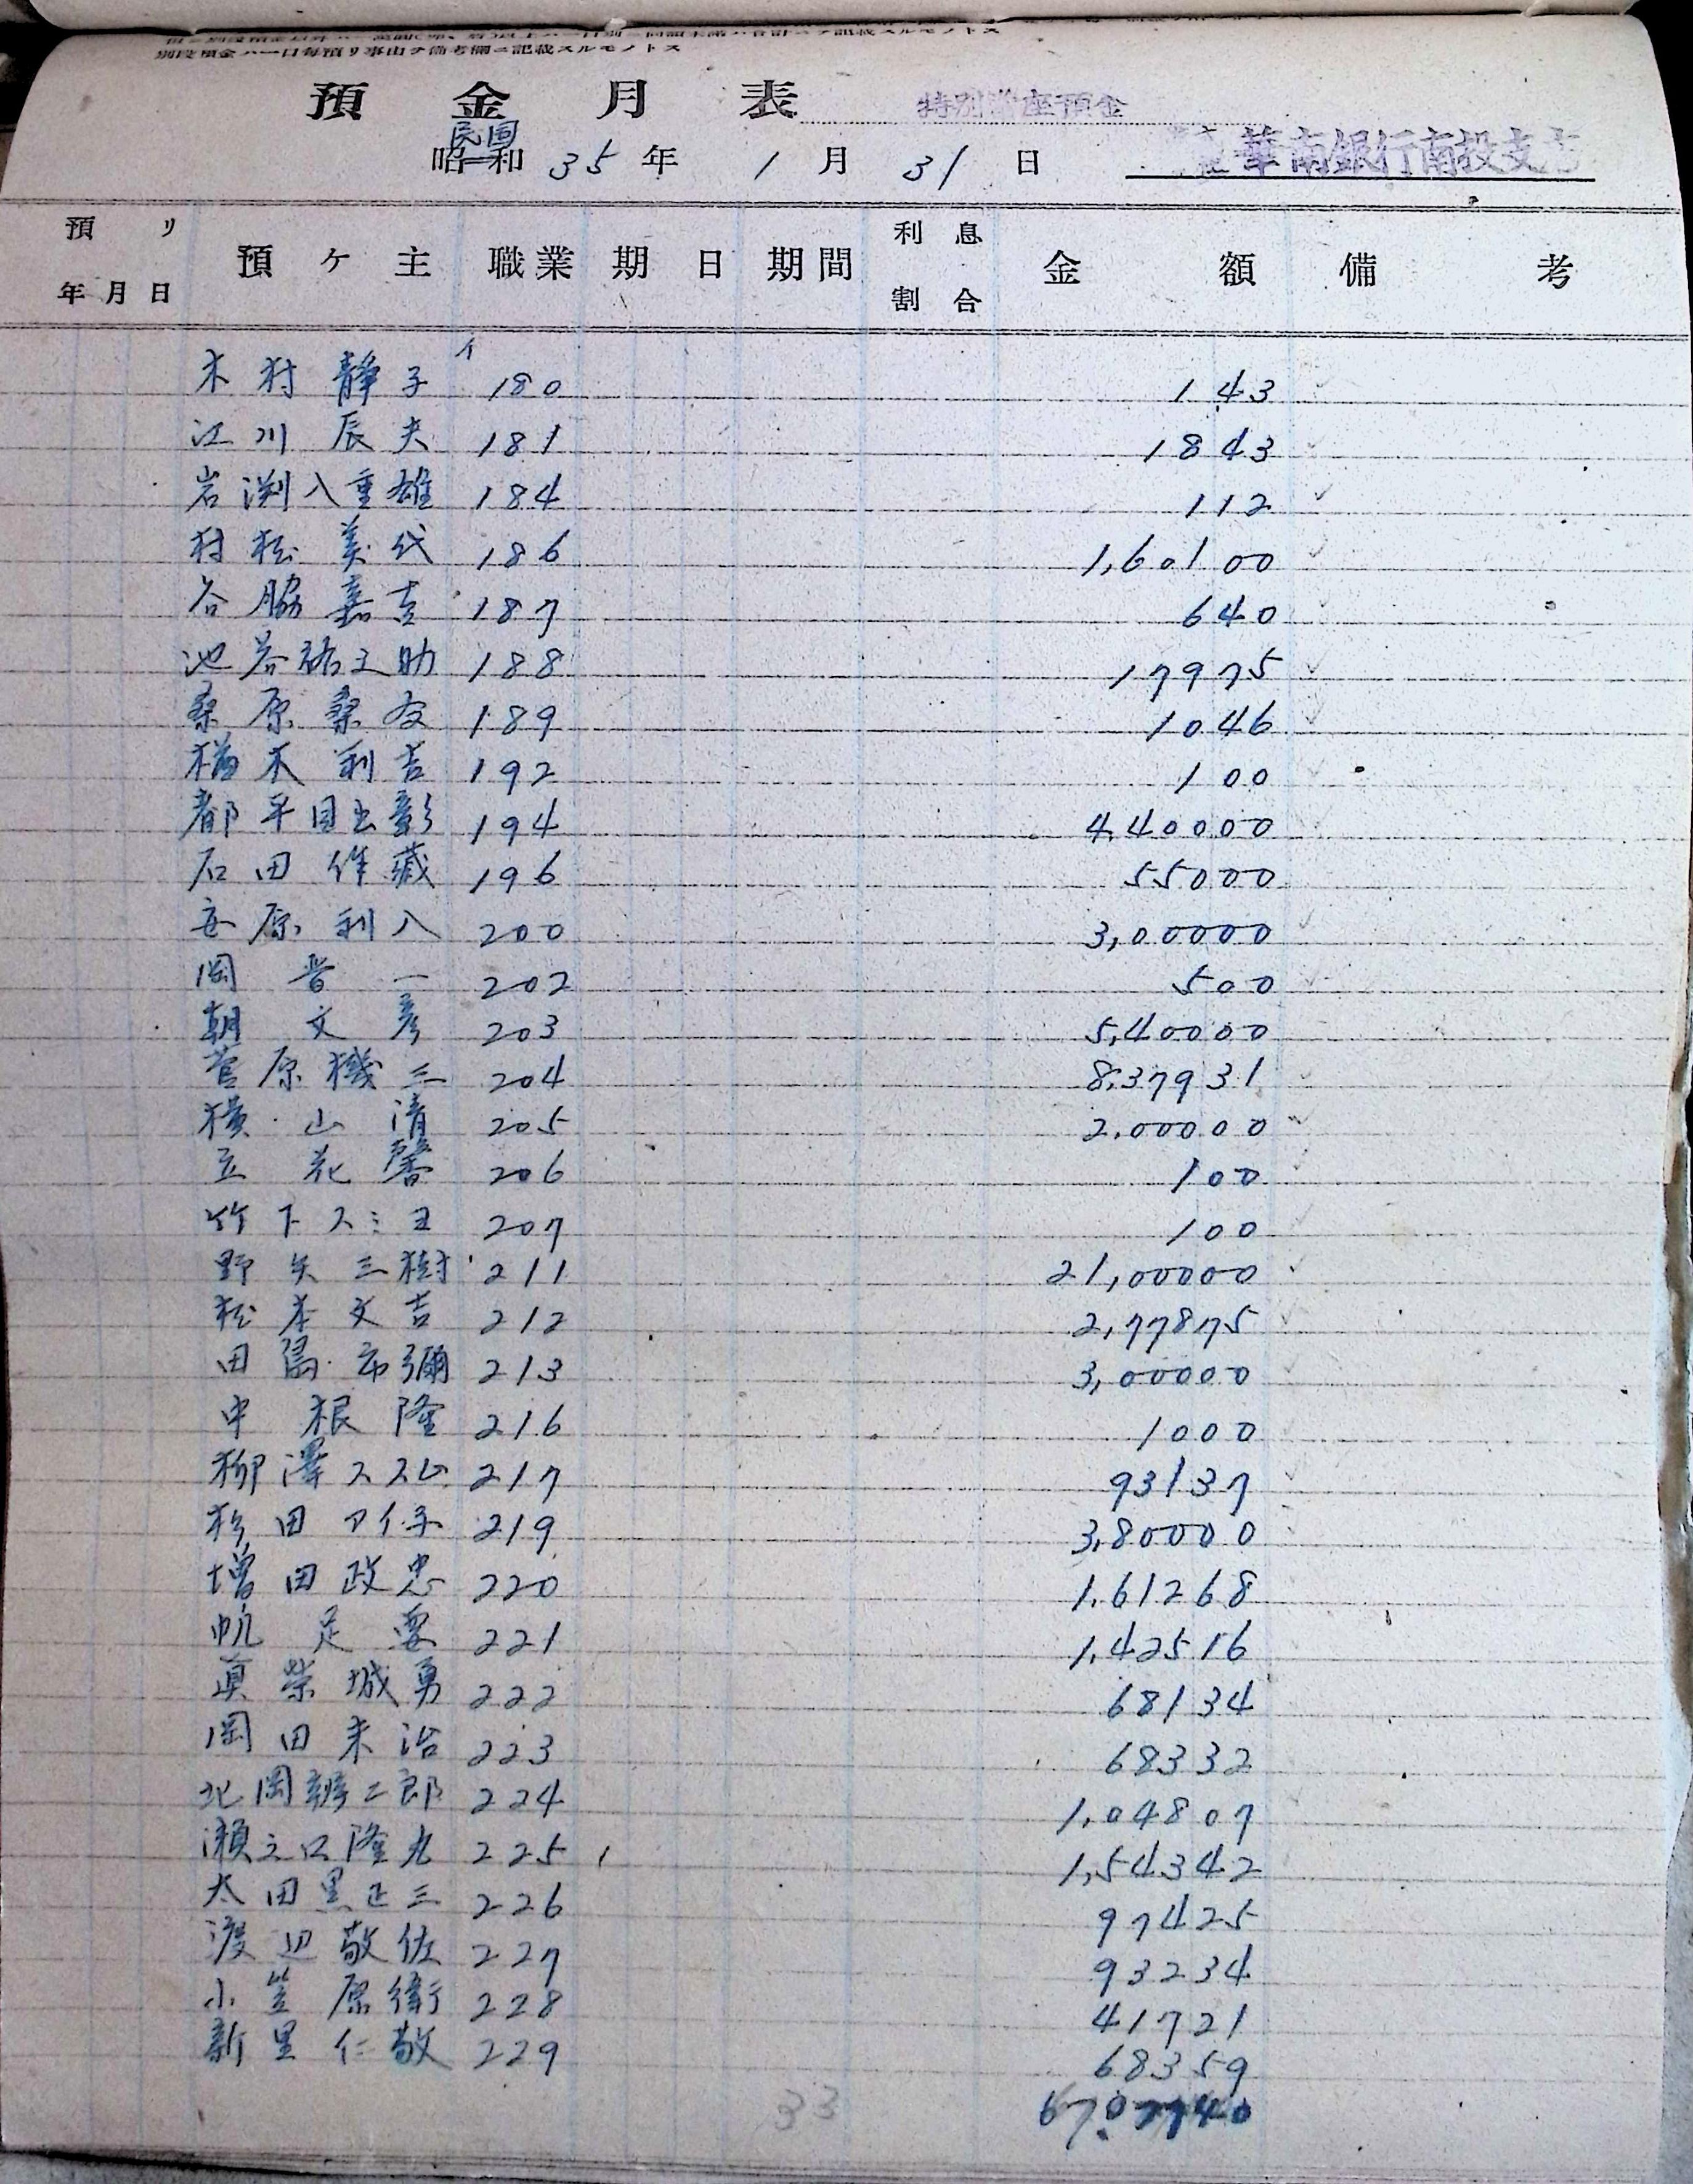 別段預金ハ一日每預リ事由ヲ備考欄ニ記載スルモノトス
預金月表 特別當座預金
民国
昭和 35 年 1 月 31 日 華南銀行南投支店
預リ年月日 預ケ主 職業 期日 期間 利息割合 金額 備考
木村静子 イ 180 143
江川辰夫 181 1843
岩渕八重雄 184 112
村松美代 186 1,60100
谷脇嘉吉 187 640
池谷祐之助 188 17975
桑原桑友 189 1046
楢木利吉 192 100
都平国彰 194 4,40000
石田作藏 196 55000
安原利八 200 3,00000
岡晋一 202 500
朝文彦 203 5,40000
菅原機三 204 8,37931
横山清 205 2,00000
立花馨 206 100
竹下スミヱ 207 100
野矢三樹 211 21,00000
松本文吉 212 2,77875
田島市彌 213 3,00000
中根隆 216 1000
柳澤ススム 217 93137
杉田アイ子 219 3,80000
増田政忠 220 1,61268
帆足要 221 1,42516
眞榮城勇 222 68134
岡田末治 223 68332
北岡辦二郎 224 1,04807
瀬之口隆九 225 1,54342
太田黒正三 226 97425
渡辺敬佐 227 93234
小笠原衛 228 41721
新里仁敬 229 68359
33